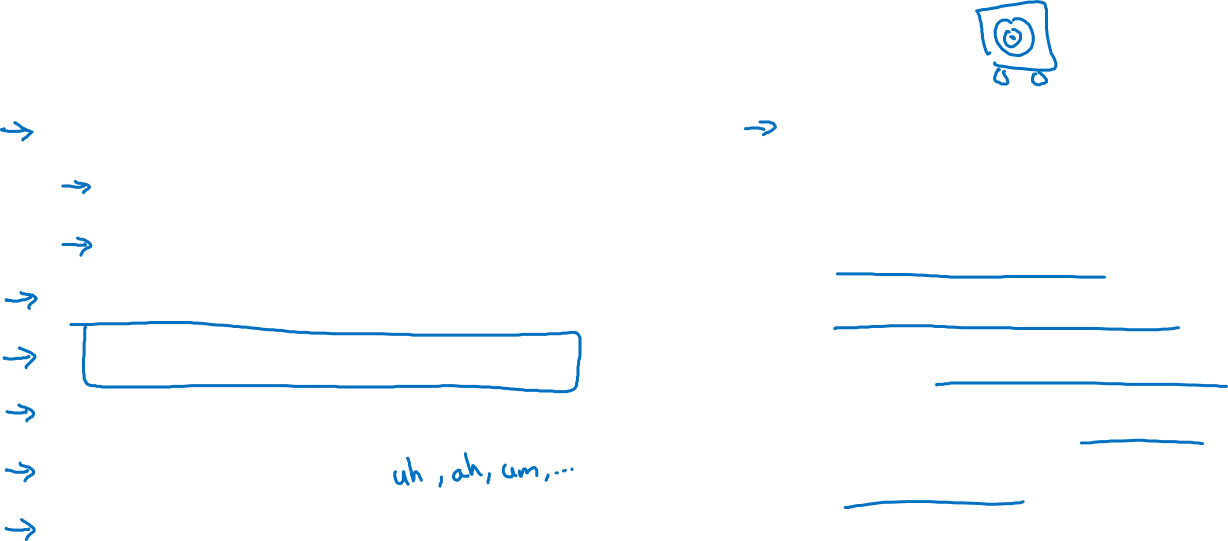 uh, ah, um, ...